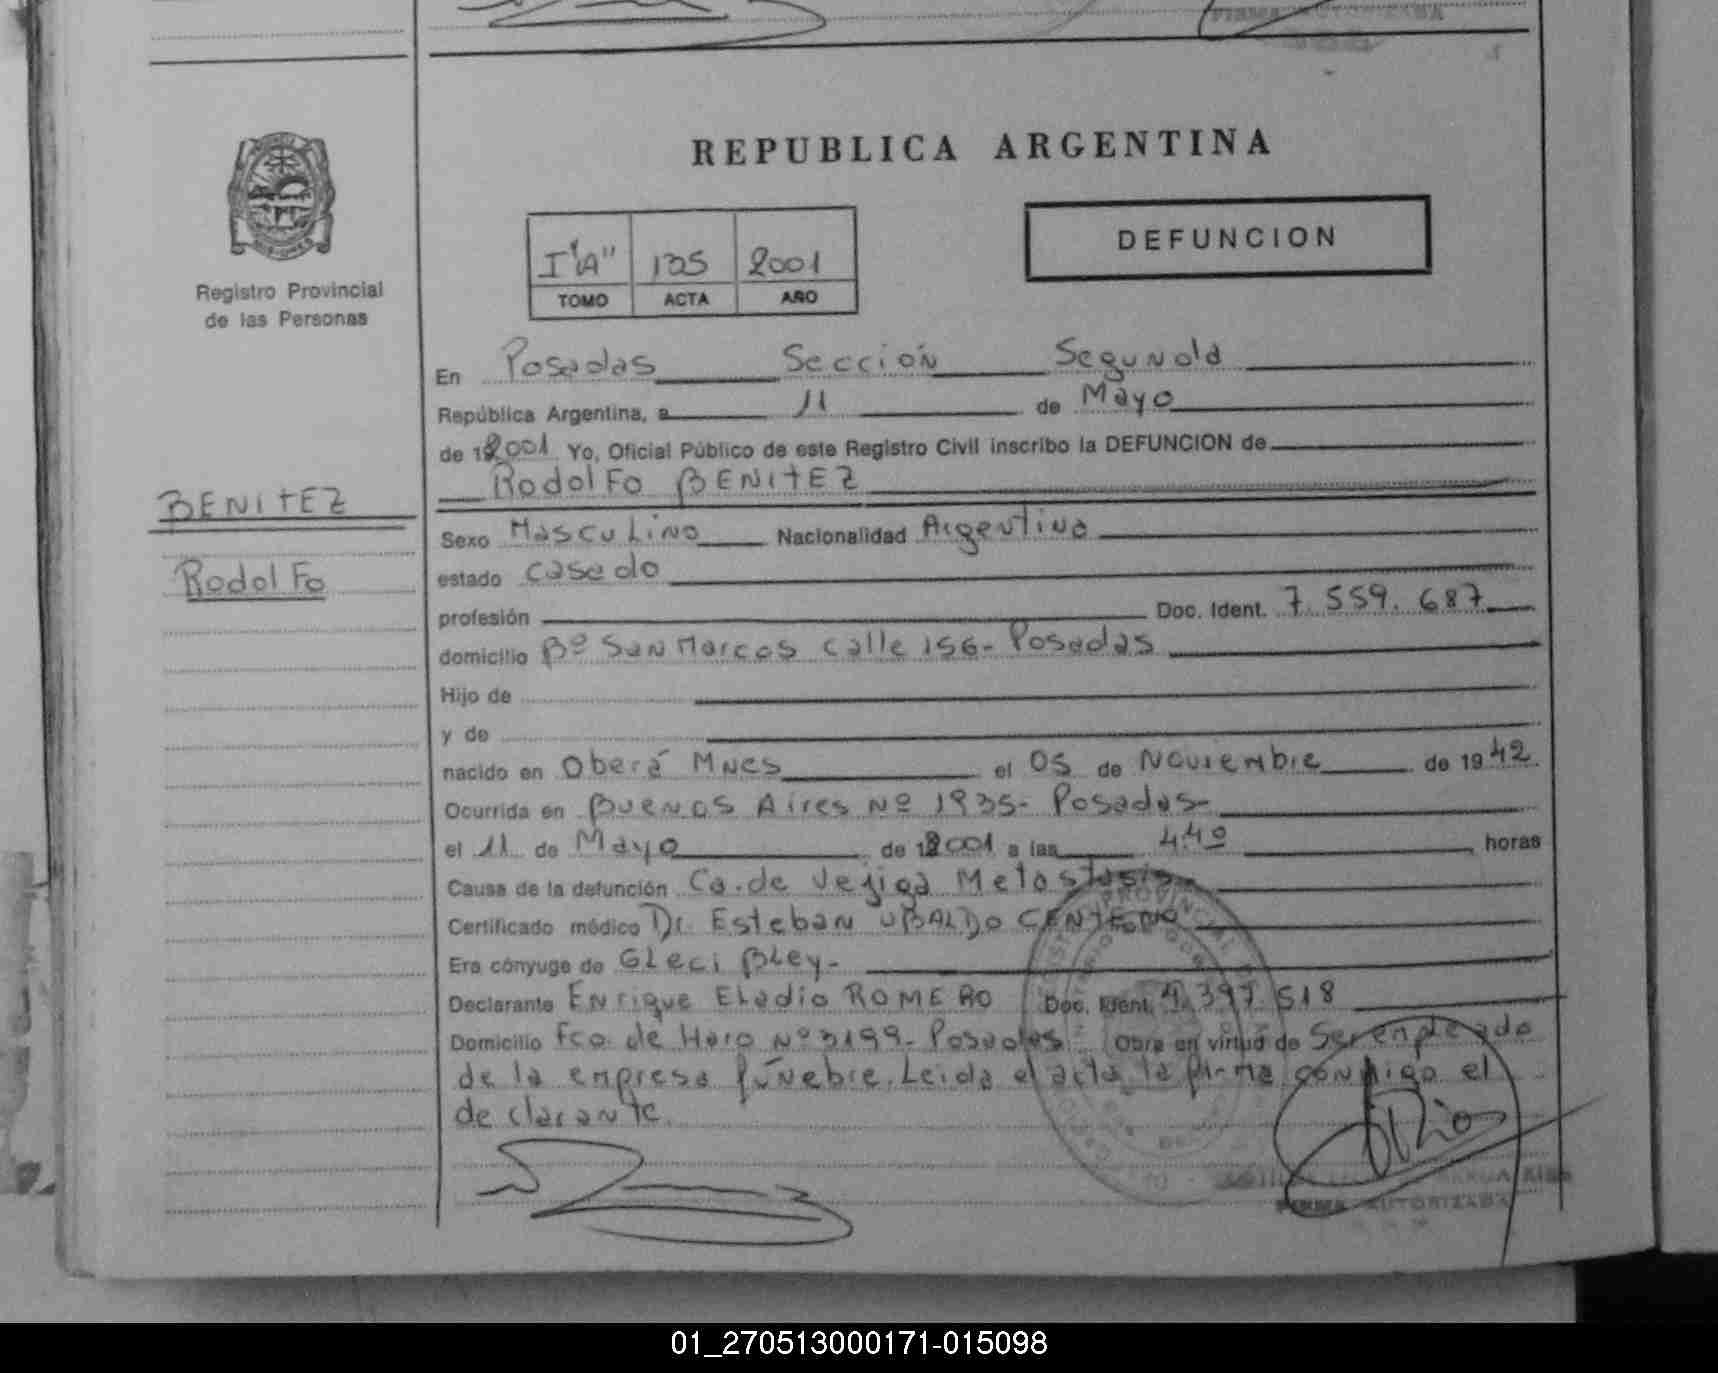 FIRMA AUTORIZADA
REPUBLICA ARGENTINA
I "A" 125 2001
TOMO ACTA AÑO
DEFUNCION
Registro Provincial
de las Personas
BENITEZ
Rodolfo
En Posadas Sección Segunda
República Argentina, a 11 de Mayo
de 2001 Yo, Oficial Público de este Registro Civil inscribo la DEFUNCION de
Rodolfo BENITEZ
Sexo Masculino Nacionalidad Argentina
estado casado
profesión Doc. Ident. 7.559.687
domicilio Bº San Marcos calle 156- Posadas
Hijo de
y de
nacido en Oberá Mnes el 05 de Noviembre de 1942.
Ocurrida en Buenos Aires Nº 1935- Posadas-
el 11 de Mayo de 2001 a las 4,40 horas
Causa de la defunción Ca. de Vejiga Metostasis-
Certificado médico Dr. Esteban UBALDO CENTENO
Era cónyuge de Gleci Bley-
Declarante Enrique Eladio ROMERO Doc. Ident. 4.397.518
Domicilio Fco. de Haro Nº 3199- Posadas Obra en virtud de Ser empleado
de la empresa fúnebre. Leida el acta la firma conmigo el
declarante.
FIRMA AUTORIZADA
01_270513000171-015098